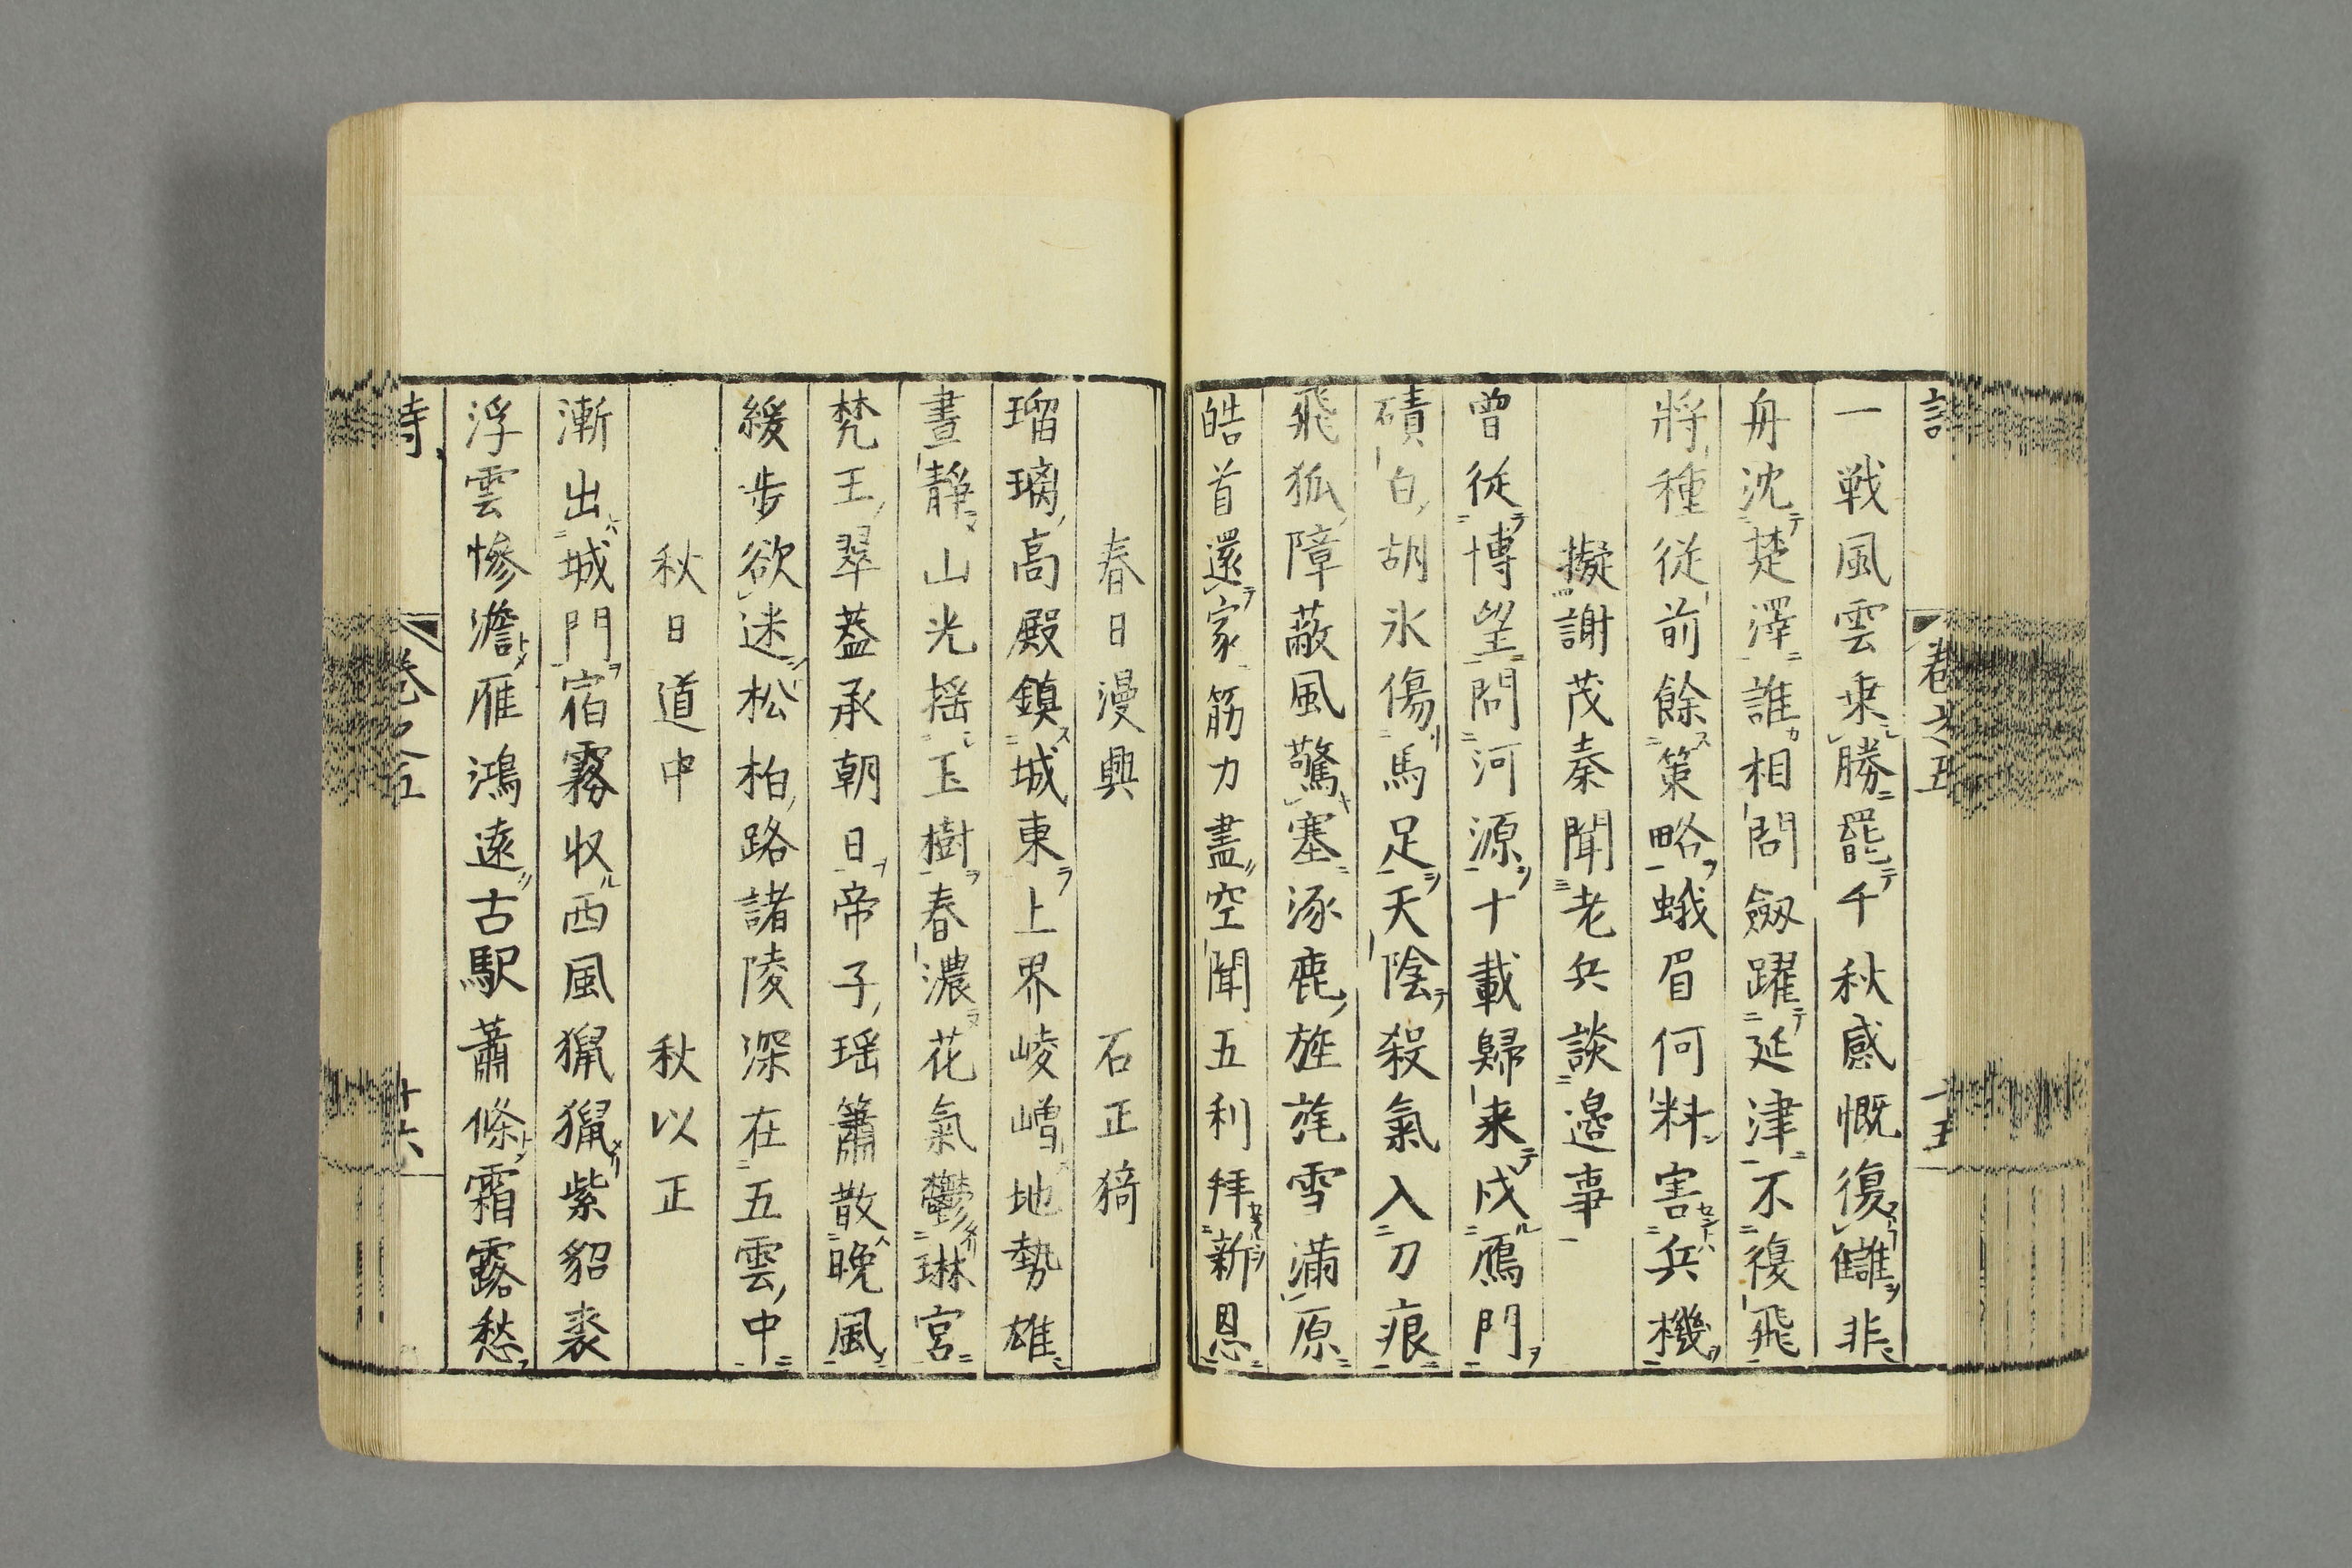 一戦風雲乗勝罷千秋感慨復讎非
舟沈楚澤誰相問劔躍延津不復飛
將種従前餘策略蛾眉何料害兵機
擬謝茂秦聞老兵談邉事
曽従博望問河源十載歸来戍鴈門
磧白胡氷傷馬足天陰殺氣入刀痕
飛狐障蔽風驚塞涿鹿旌旄雪滿原
皓首還家筋力盡空聞五利拜新恩
春日漫興 石正猗
瑠璃高殿鎮城東上界崚嶒地勢雄
晝静山光揺玉樹春濃花氣鬱琳宮
梵王翠蓋承朝日帝子瑶簫散晩風
緩歩欲迷松柏路諸陵深在五雲中
秋日道中 秋以正
漸出城門宿霧収西風猟猟紫貂裘
浮雲惨澹雁鴻遠古駅蕭條霜露愁